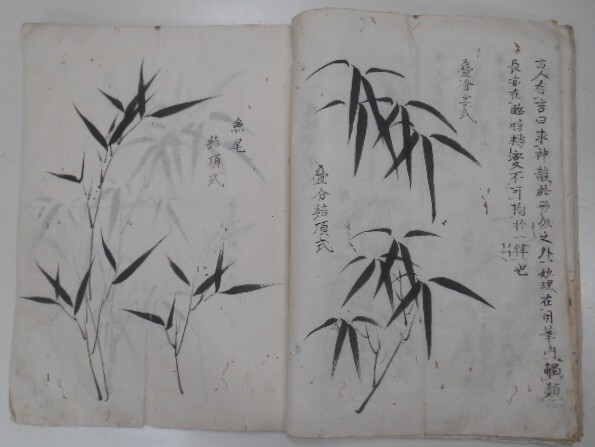 古人有言曰求神韻於形似之外妙理在用筆內觸類
長亦在臨時轉變不可拘於一律也
疊分字式
疊分結頂式
魚尾
結頂式